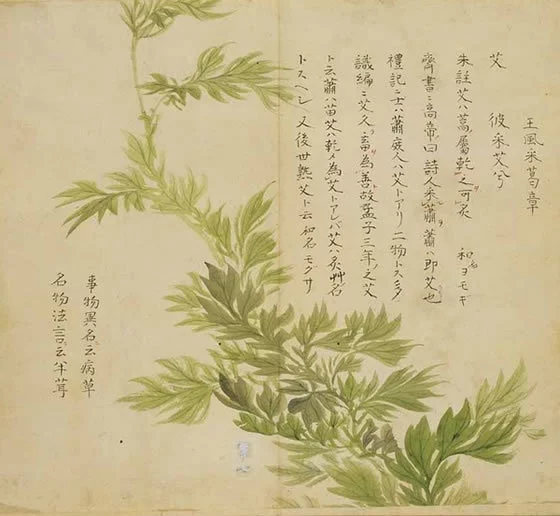 王風采葛章
艾 彼采艾兮
朱註艾ハ蒿屬乾之可灸 和名ヨモギ
齊書ニ高帝曰詩人采蕭蕭ハ即艾也
禮記ニ士ハ蕭庶人ハ艾トアリ二物トス
識編ニ艾久ク畜為善故孟子三年之艾
ト云蕭ハ苗艾ハ乾〆為艾トアレバ艾ハ灸艸名
トスヘシ又後世熟艾ト云和名モグサ
事物異名云病草
名物法言云